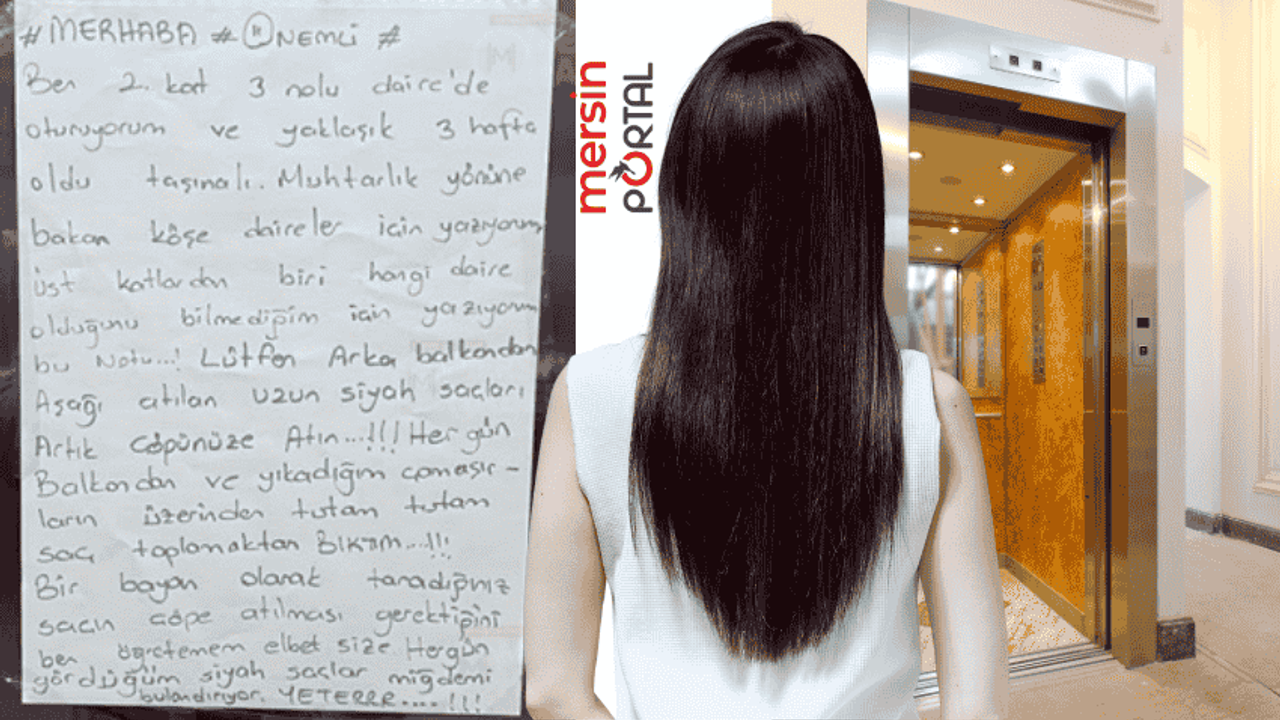 # MERHABA # ÖNEMLİ #
Ben 2. kat 3 nolu daire'de
oturuyorum ve yaklaşık 3 hafta
oldu taşınalı. Muhtarlık yönüne
bakan köşe daireler için yazıyorum
üst katlardan biri hangi daire
olduğunu bilmediğim için yazıyorum
bu Notu...! Lütfen Arka balkondan
Aşağı atılan uzun siyah saçları
Artık çöpünüze Atın...!!! Her gün
Balkondan ve yıkadığım çamaşır-
ların üzerinden tutam tutam
saç toplamaktan BIKTIM...!!!
Bir bayan olarak taradığınız
saçın çöpe atılması gerektiğini
ben öğretemem elbet size Hergün
gördüğüm siyah saçlar miğdemi
bulandırıyor. YETERRR....!!!
mersin
PORTAL